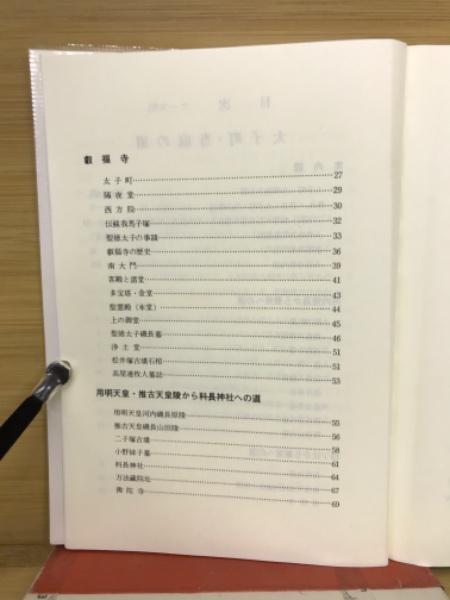 叡福寺
太子町 27
隔夜堂 29
西方院 30
伝蘇我馬子塚 32
聖徳太子の事蹟 33
叡福寺の歴史 36
南大門 39
客殿と諸堂 41
多宝塔・金堂 43
聖霊殿（本堂） 44
上の御堂 45
聖徳太子磯長墓 46
浄土堂 51
松井塚古墳石棺 51
高屋連枚人墓誌 53
用明天皇・推古天皇陵から科長神社への道
用明天皇河内磯長原陵 55
推古天皇磯長山田陵 56
二子塚古墳 58
小野妹子墓 61
科長神社 61
万法蔵院址 64
佛陀寺 67
69